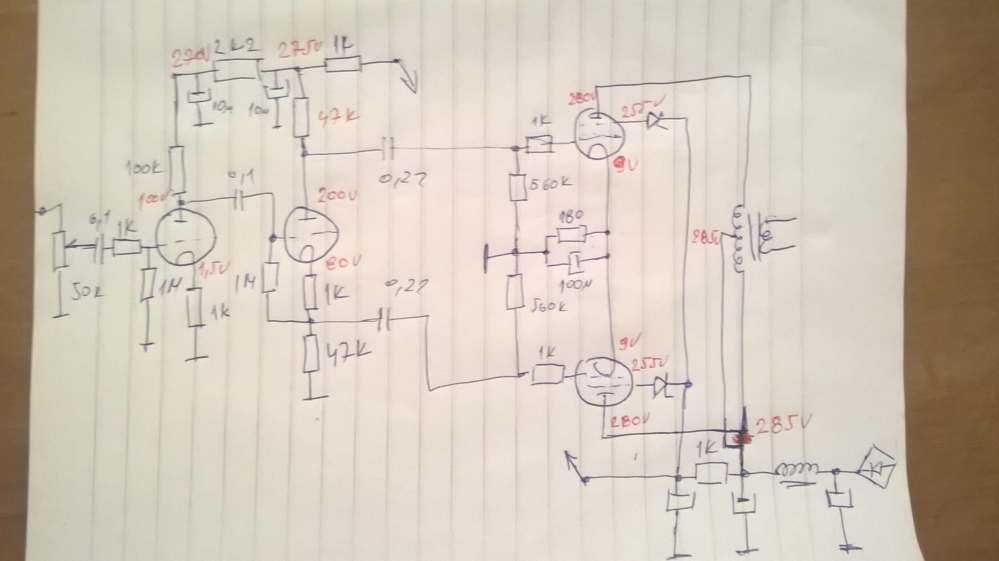 270V 2k2 275V 1K
10µ 10µ
47K
100K
100V 0,1
0,27
1K
280V 255V
9V
560K
0,1 1K
200V
180
285V
1,5V
80V
50K 1M 1K 1M 1K
0,27
100µ
560K
47K
1K
9V 255V
280V
285V
1K